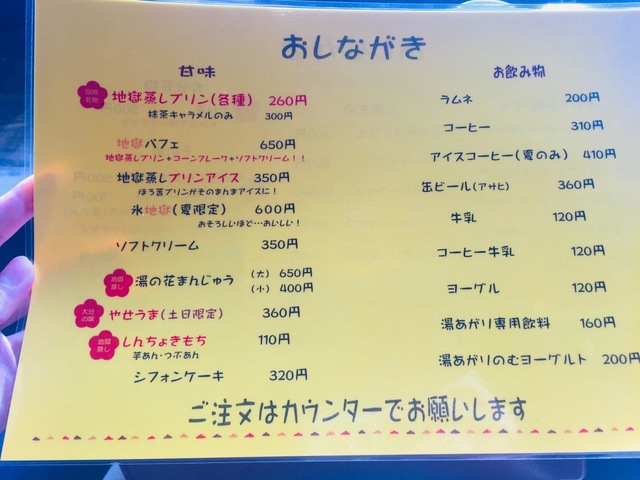 おしながき
甘味
別府名物 地獄蒸しプリン(各種) 260円
抹茶キャラメルのみ 300円
地獄パフェ 650円
地獄蒸しプリン+コーンフレーク+ソフトクリーム!!
地獄蒸しプリンアイス 350円
ほろ苦プリンがそのまんまアイスに!
氷地獄(夏限定) 600円
おそろしいほど…おいしい!
ソフトクリーム 350円
地獄蒸し 湯の花まんじゅう (大) 650円
(小) 400円
大分の味 やせうま(土日限定) 360円
地獄蒸し しんちょきもち 110円
芋あん・つぶあん
シフォンケーキ 320円
お飲み物
ラムネ 200円
コーヒー 310円
アイスコーヒー(夏のみ) 410円
缶ビール(アサヒ) 360円
牛乳 120円
コーヒー牛乳 120円
ヨーグル 120円
湯あがり専用飲料 160円
湯あがりのむヨーグルト 200円
ご注文はカウンターでお願いします